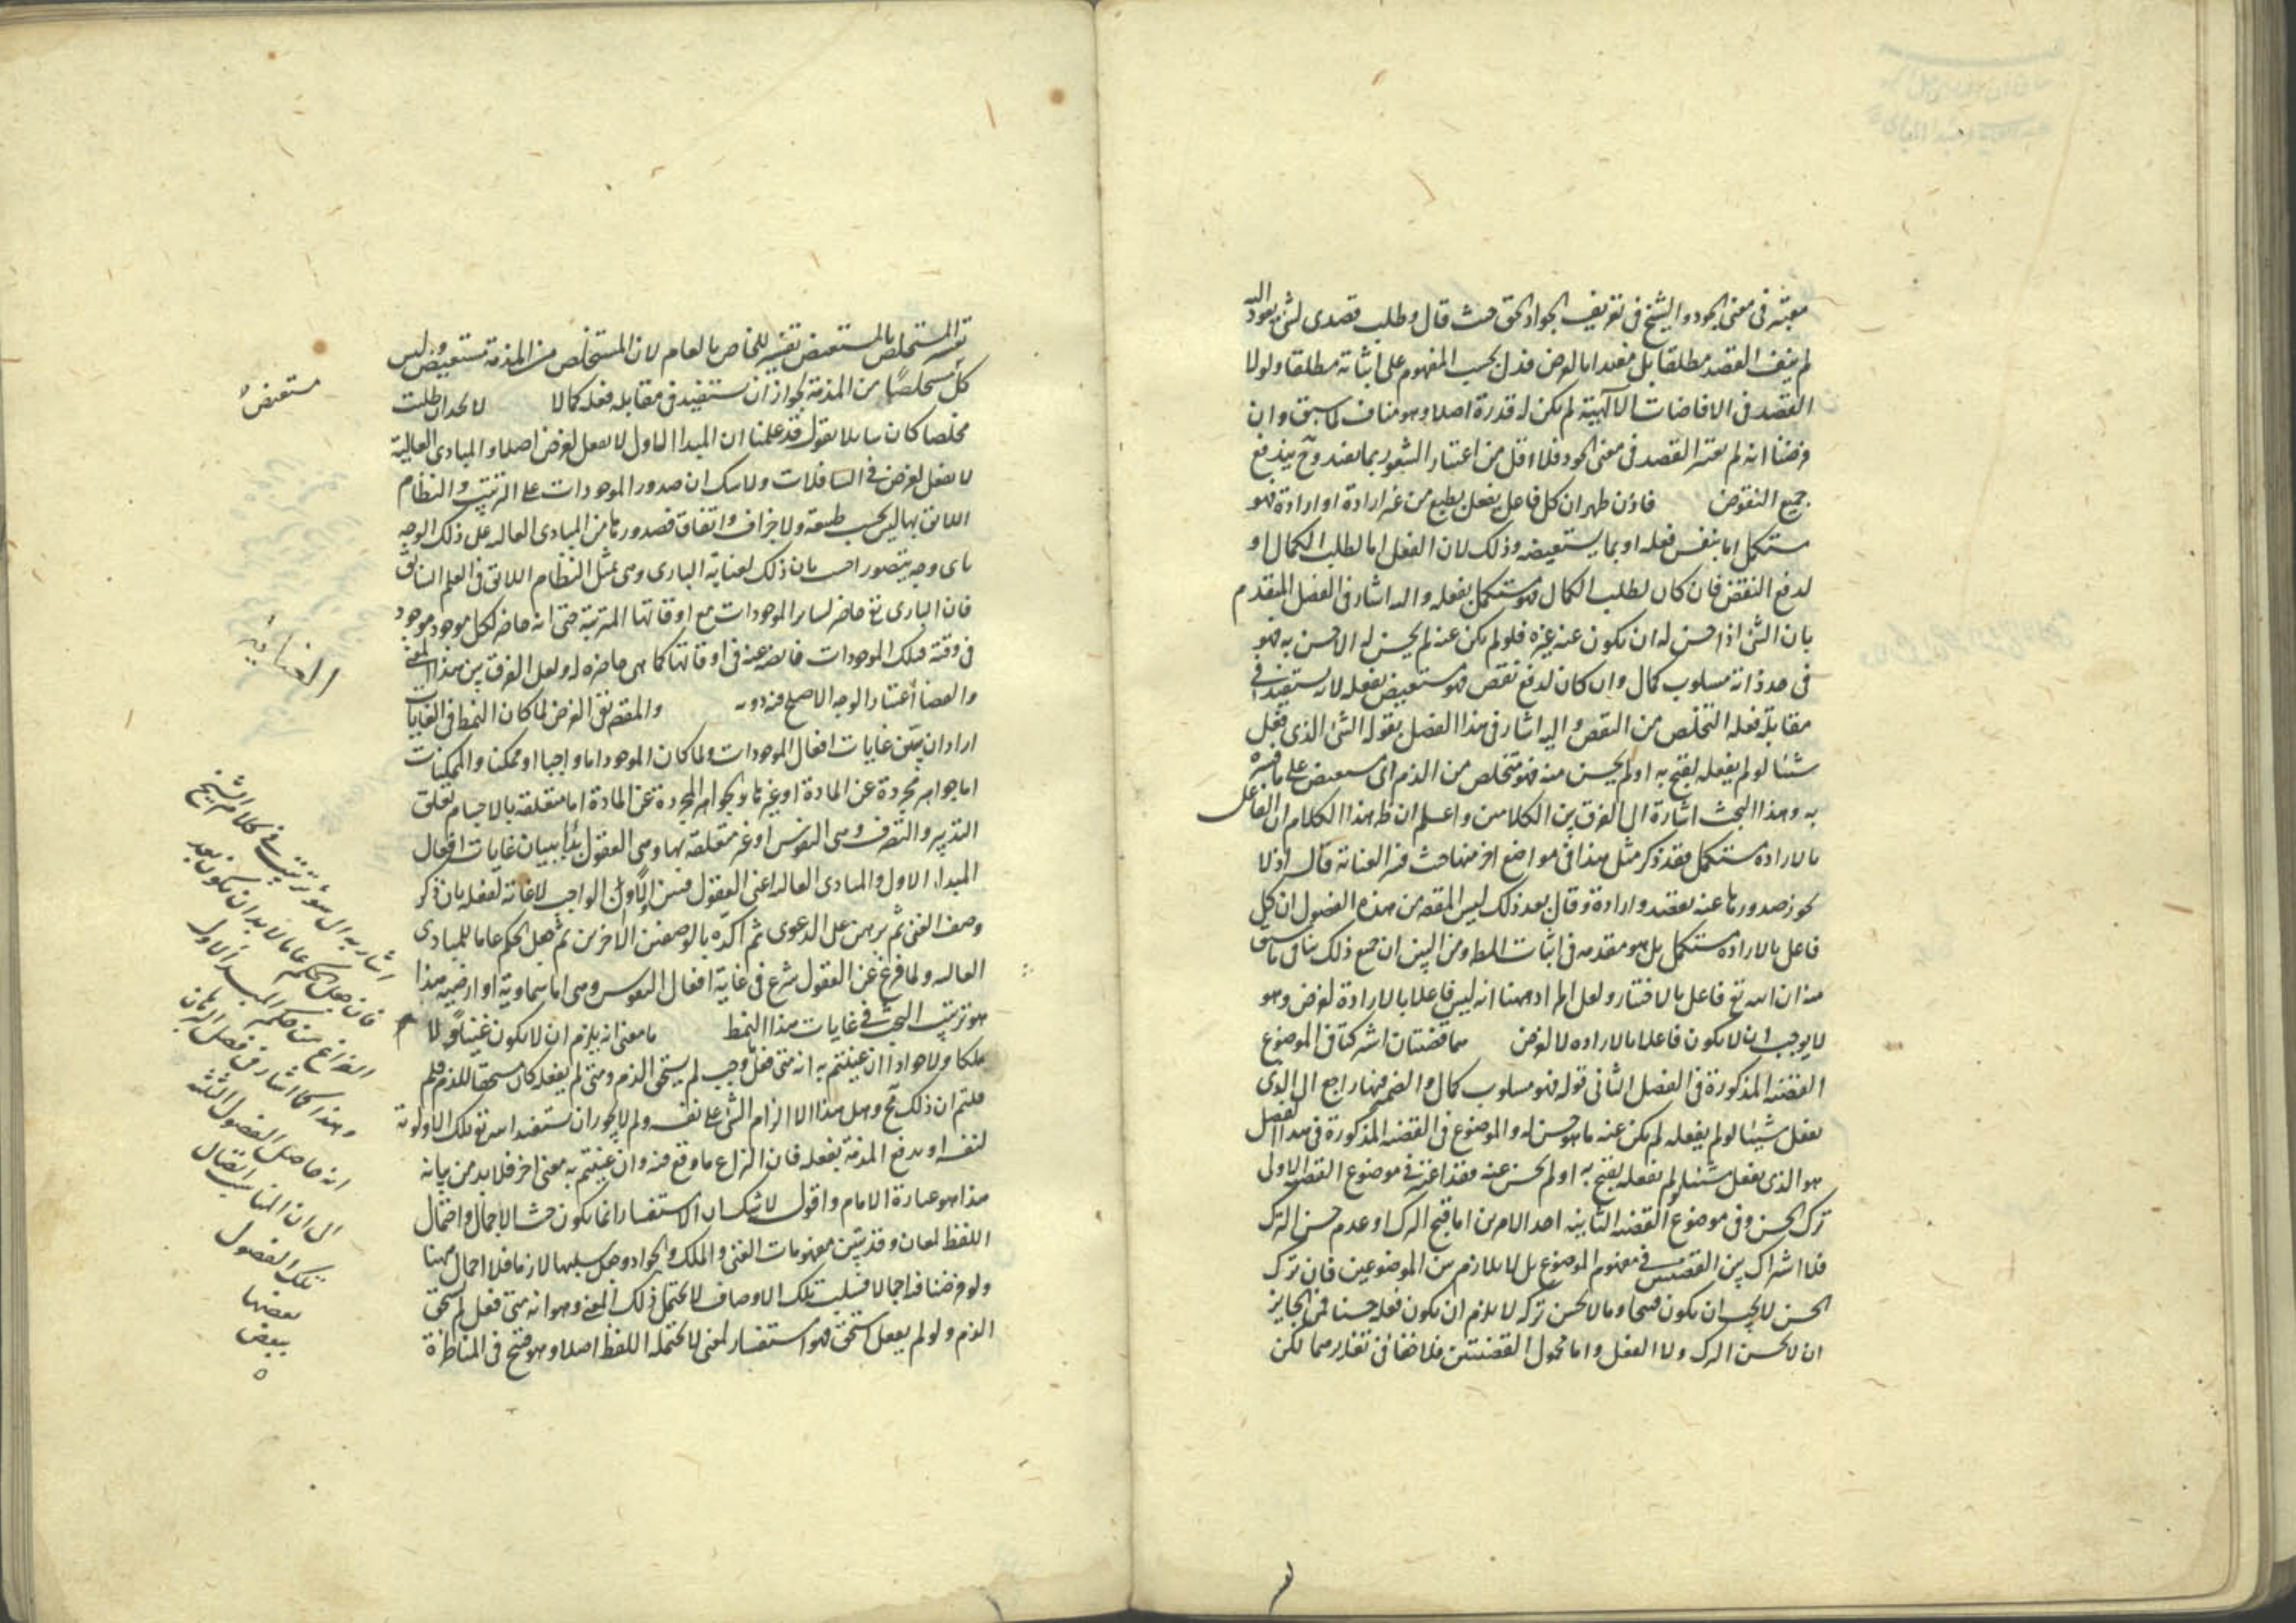 معتبر فى معنى الجود والشيخ فى تعريف الجواد الحق حيث قال وطلب قصدى لشئ يعود اليه
لم ينف القصد مطلقا بل مقيدا بالعرض فدل بحسب المفهوم على اثباته مطلقا ولولا
القصد فى الافاضات الالهية لم يكن له قدرة اصلا وهو مناف لما سبق وان
فرضنا انه لم يعتبر القصد فى معنى الجود فلا اقل من اعتبار الشعور بما يفيد وح يندفع
جميع النقوض فاذن ظهر ان كل فاعل يفعل بطبع من غير ارادة او ارادة فهو
مستكمل اما بنفس فعله او بما يستعيضه وذلك لان الفعل اما لطلب الكمال او
لدفع النقص فان كان لطلب الكمال فهو مستكمل بفعله واليه اشار فى الفصل المتقدم
بان الشئ اذا حسن له ان يكون عنه غيره فلو لم يكن عنه لم يحسن له الاحسن به فهو
فى حد ذاته مسلوب كمال وان كان لدفع نقص فهو مستعيض بفعله لانه يستفيد فى
مقابلة فعله التخلص من النقص واليه اشار فى هذا الفصل بقوله الشئ الذى يفعل
شيئا لو لم يفعله لقبح به او لم يحسن منه فهو متخلص من الذم اى مستعيض على ما فسره
به وهذا البحث اشارة الى الفرق بين الكلامين واعلم ان ظ هذا الكلام ان الفاعل
بالارادة مستكمل فقد ذكر مثل هذا فى مواضع اخر منها حيث فسر العناية قال اذ لا
يجوز صدورها عنه بقصد وارادة وقال بعد ذلك ليس المقصد من هذه الفصول ان كل
فاعل بالارادة مستكمل بل هو مقدمه فى اثبات المط ومن البين ان جميع ذلك ينافى ما سبق
منه ان الله تع فاعل بالاختيار ولعل المراد ههنا انه ليس فاعلا بالارادة لغرض وهو
لا يوجب ان لا يكون فاعلا بالاراده لا لغرض هما قضيتان اشتركتا فى الموضوع
القضيه المذكورة فى الفصل الثانى قوله فهو مسلوب كمال والضمير فيها راجع الى الذى
يفعل شيئا لو لم يفعله لم يكن عنه ما هو حسن له والموضوع فى القضيه المذكورة فى هذا الفصل
هو الذى يفعل شيئا لو لم يفعله يقبح به او لم يحسن عنه فقد اعتبر فى موضوع القضيه الاولى
ترك الحسن وفى موضوع القضيه الثانيه احد الامرين اما قبح الترك او عدم حسن الترك
فلا اشتراك بين القضيتين فى مفهوم الموضوع بل لا تلازم بين الموضوعين فان ترك
الحسن لا يجب ان يكون قبيحا وما لا يحسن تركه لا يلزم ان يكون فعله حسنا فمن الجايز
ان لا يحسن الترك ولا الفعل واما محمول القضيتين فلا خفا فى تغايرهما لكن
تفسير المستخلص بالمستعيض تفسير للخاص بالعام لان المستخلص من المذمة مستعيض وليس
كل مستعيض متخلصا من المذمة لجواز ان يستفيد فى مقابله فعله كمالا
مخلصا كان لا يقول قد علمنا ان المبدا الاول لا يفعل لغرض اصلا والمبادى العالية
لا تفعل لغرض فى السافلات ولا شك ان صدور الموجودات على الترتيب والنظام
اللايق بها ليس بحسب طبيعة ولا جزاف واتفاق فصدورها من المبادى العاليه على ذلك الوجه
باى وجه يتصور اجيب بان ذلك لعناية البارى وهى تمثل النظام اللايق فى العلم السابق
فان البارى تع حاضر لساير الموجودات مع اوقاتها المترتبة حتى انه حاضر لكل موجود موجود
فى وقته فتلك الموجودات فايضه عنه فى اوقاتها كما هى حاضره له ولعل الفرق بين هذا المعنى
والقضا اعتبار الوجه الاصلح فيه دونه والمقصد نفى الغرض لما كان النمط فى الغايات
اراد ان يبين غايات افعال الموجودات ولما كان الموجود اما واجبا او ممكنا والممكنات
اما جواهر مجردة عن المادة او غيرها والجواهر المجردة عن المادة اما متعلقة بالاجسام تعلق
التدبير والتصرف وهى النفوس او غير متعلقة بها وهى العقول بدا ببيان غايات افعال
المبدا الاول والمبادى العاليه اعنى العقول فبين اولا ان الواجب لا غاية لفعله بان ذكر
وصف الغنى ثم برهن على الدعوى ثم اكده بالوصفين الاخرين ثم جعل الحكم عاما للمبادى
العاليه ولما فرغ عن العقول شرع فى غاية افعال النفوس وهى اما سماوية او ارضيه هذا
هو ترتيب البحث فى غايات هذا النمط ما معنى انه يلزم ان لا يكون غنيا ولا
ملكا ولا جوادا ان عنيتم به انه متى فعل وجب لم يستحق الذم ومتى لم يفعله كان مستحقا للذم فلم
قلتم ان ذلك مح وهل هذا الا الزام الشئ على نفسه ولم لا يجوز ان يستفيد الله تع تلك الاولوية
لنفسه او يدفع المذمة بفعله فان النزاع ما وقع فيه وان عنيتم به معنى اخر فلا بد من بيانه
هذا هو عبارة الامام واقول لا شك ان الاستفسار انما يكون حيث الاجمال واحتمال
اللفظ لمعان وقد تبين مفهومات الغنى والملك والجواد وجعل سلبها لازما فلا اجمال ههنا
ولو فرضنا فيه اجمالا فسلب تلك الاوصاف لا يحتمل ذلك المعنى وهو انه متى فعل لم يستحق
الذم ولو لم يفعل استحق فهو استفسار لمعنى لا يحتمله اللفظ اصلا وهو قبيح فى المناظرة
مستعيض
العناية
اشار به الى سؤ ترتيب فى كلام الشيخ
فان جعل الحكم عاما لا بد ان يكون بعد
الفراغ من حكم المبدا الاول
وهذا كما اشار فى فصل البرهان
انه حاصل الفصول الثلثه
الى ان المناسب اتصال
تلك الفصول
بعضها
ببعض